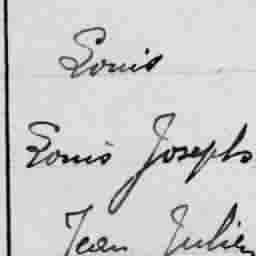 Louis
Louis Joseph
Jean Julien